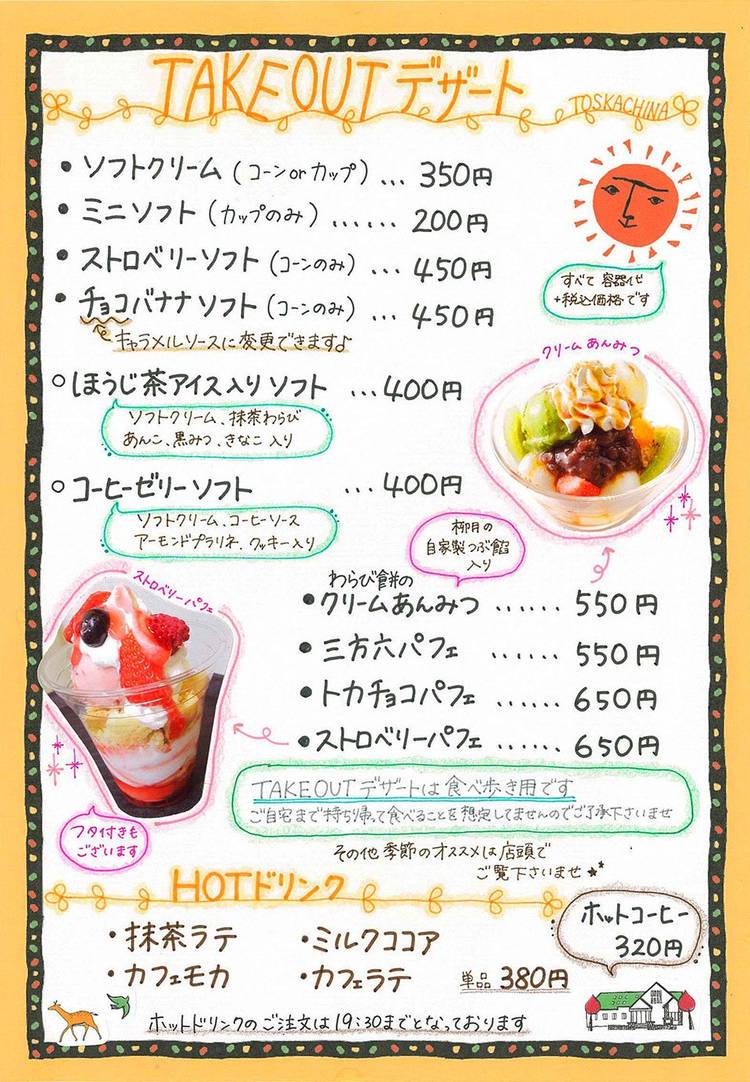 TAKEOUT デザート
TOSKACHINA
• ソフトクリーム (コーンorカップ) ... 350円
• ミニソフト (カップのみ) ...... 200円
• ストロベリーソフト (コーンのみ) ... 450円
• チョコバナナソフト (コーンのみ) ... 450円
キャラメルソースに変更できます♪
すべて 容器代
+税込価格です
クリームあんみつ
○ ほうじ茶アイス入りソフト ...400円
ソフトクリーム、抹茶わらび
あんこ、黒みつ、きなこ 入り
○ コーヒーゼリーソフト ...400円
ソフトクリーム、コーヒーソース
アーモンドプラリネ、クッキー入り
柳月の
自家製つぶ餡
入り
ストロベリーパフェ
わらび餅の
• クリームあんみつ ...... 550円
• 三方六パフェ ...... 550円
• トカチョコパフェ ...... 650円
• ストロベリーパフェ ...... 650円
TAKEOUTデザートは食べ歩き用です
ご自宅まで持ち帰って食べることを想定してませんのでご了承下さいませ
フタ付きも
ございます
その他 季節のオススメは店頭で
ご覧下さいませ
HOTドリンク
・抹茶ラテ ・ミルクココア
・カフェモカ ・カフェラテ 単品 380円
ホットコーヒー
320円
ホットドリンクのご注文は19:30までとなっております